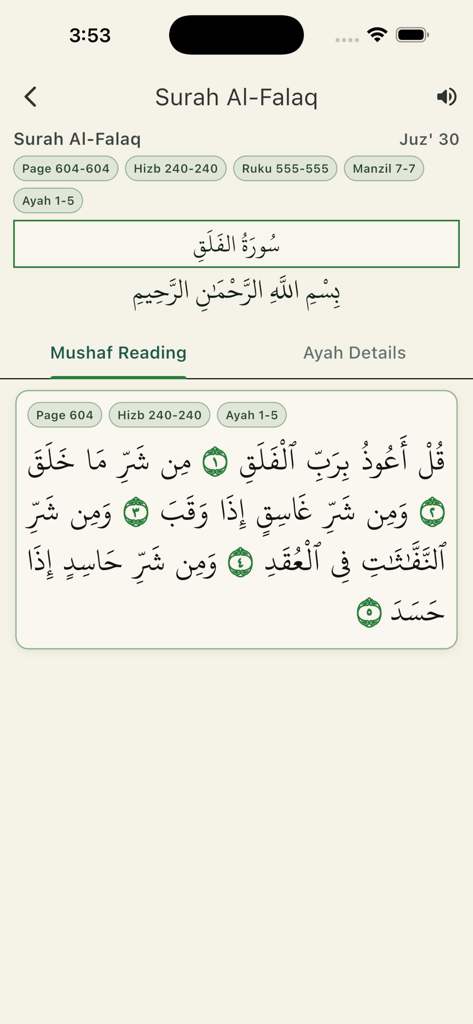 3:53
Surah Al-Falaq
Surah Al-Falaq Juz' 30
Page 604-604 Hizb 240-240 Ruku 555-555 Manzil 7-7
Ayah 1-5
سُورَةُ الفَلَقِ
بِسْمِ اللَّهِ الرَّحْمَـٰنِ الرَّحِيمِ
Mushaf Reading Ayah Details
Page 604 Hizb 240-240 Ayah 1-5
قُلْ أَعُوذُ بِرَبِّ ٱلْفَلَقِ ١ مِن شَرِّ مَا خَلَقَ
٢ وَمِن شَرِّ غَاسِقٍ إِذَا وَقَبَ ٣ وَمِن شَرِّ
ٱلنَّفَّـٰثَـٰتِ فِى ٱلْعُقَدِ ٤ وَمِن شَرِّ حَاسِدٍ إِذَا
حَسَدَ ٥